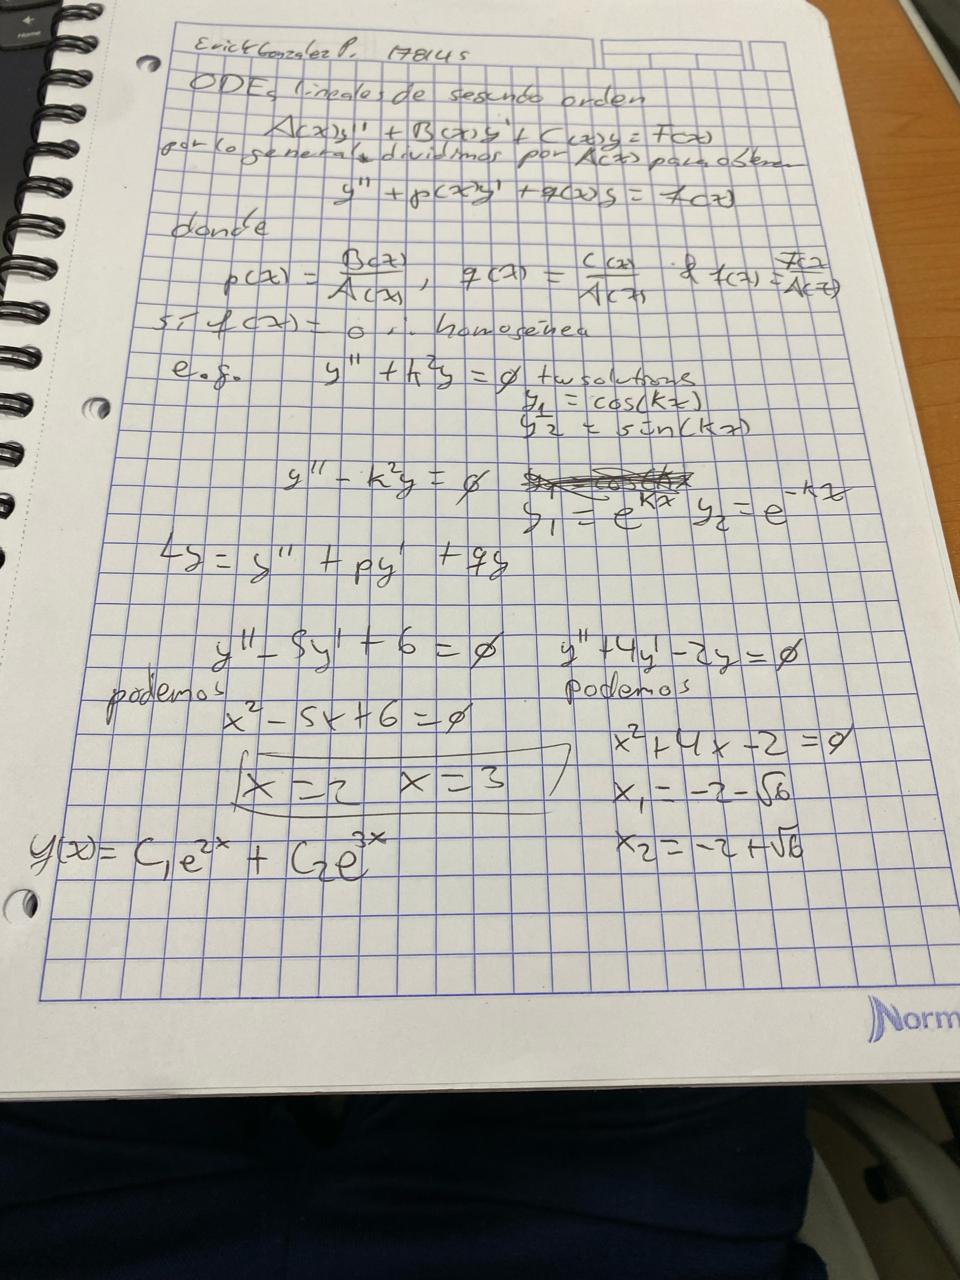 Erick Gonzalez P. 178145
ODEs lineales de segundo orden
A(x)y'' + B(x)y' + C(x)y = F(x)
por lo general dividimos por A(x) para obtener
y'' + p(x)y' + q(x)y = f(x)
donde
p(x) = B(x)/A(x), q(x) = C(x)/A(x) & f(x) = F(x)/A(x)
si f(x) = 0 ∴ homogénea
e.g. y'' + k²y = ∅ two solutions
y₁ = cos(kx)
y₂ = sin(kx)
y'' - k²y = ∅
y₁ = e^{kx} y₂ = e^{-kx}
Ly = y'' + py' + qy
y'' - 5y' + 6 = ∅ y'' + 4y' - 2y = ∅
podemos podemos
x² - 5x + 6 = ∅
x² + 4x - 2 = ∅
x = 2 x = 3
x₁ = -2 - √6
y(x) = C₁e^{2x} + C₂e^{3x}
x₂ = -2 + √6
Norm